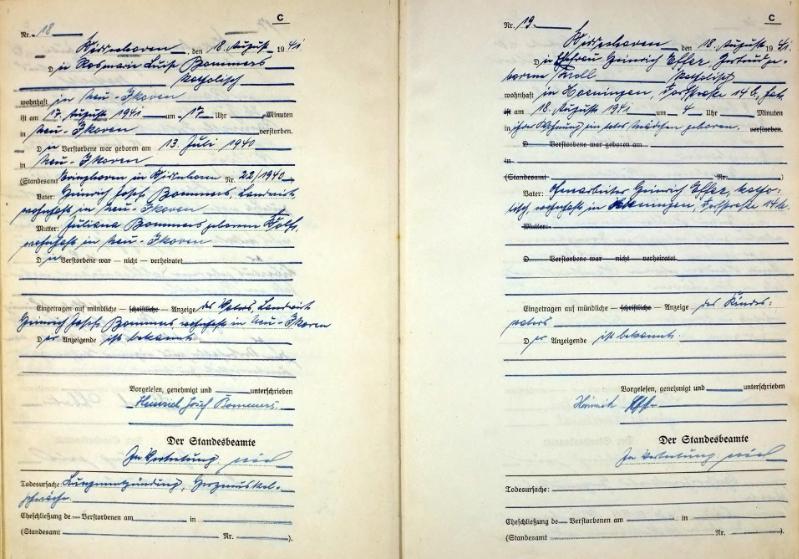 C
Nr. 18
, den 18. August 1941
Die Rosmarie Luise Bommers
katholisch
wohnhaft in Neu-Ikoven
ist am 17. August 1941 um 17 Uhr Minuten
in Neu-Ikoven verstorben.
D ie Verstorbene war geboren am 13. Juli 1940
in Neu-Ikoven
(Standesamt Nr. 22/1940)
Vater: Heinrich Josef Bommers, Landwirt,
wohnhaft in Neu-Ikoven
Mutter: Juliana Bommers geborene
wohnhaft in Neu-Ikoven
D ie Verstorbene war — nicht — verheiratet
Eingetragen auf mündliche — schriftliche — Anzeige des Vaters, Landwirt
Heinrich Josef Bommers wohnhaft in Neu-Ikoven
D er Anzeigende ist bekannt.
Vorgelesen, genehmigt und unterschrieben
Heinrich Josef Bommers
Der Standesbeamte
In Vertretung
Todesursache: Lungenentzündung, Herzmuskel-
schwäche
Eheschließung de Verstorbenen am in
(Standesamt Nr. ).
C
Nr. 19
, den 18. August 1941
Die Ehefrau Heinrich Effer, Gertrud ge-
borene Kroll katholisch
wohnhaft in
ist am 18. August 1941 um 4 Uhr Minuten
in ihre Wohnung ein totes Mädchen geboren. verstorben.
D Verstorbene war geboren am
in
(Standesamt Nr. )
Vater: Heinrich Effer, katho-
lisch, wohnhaft in
Mutter:
D Verstorbene war — nicht — verheiratet
Eingetragen auf mündliche — schriftliche — Anzeige des Kindes-
vaters
D er Anzeigende ist bekannt.
Vorgelesen, genehmigt und unterschrieben
Heinrich Effer
Der Standesbeamte
In Vertretung
Todesursache:
Eheschließung de Verstorbenen am in
(Standesamt Nr. ).